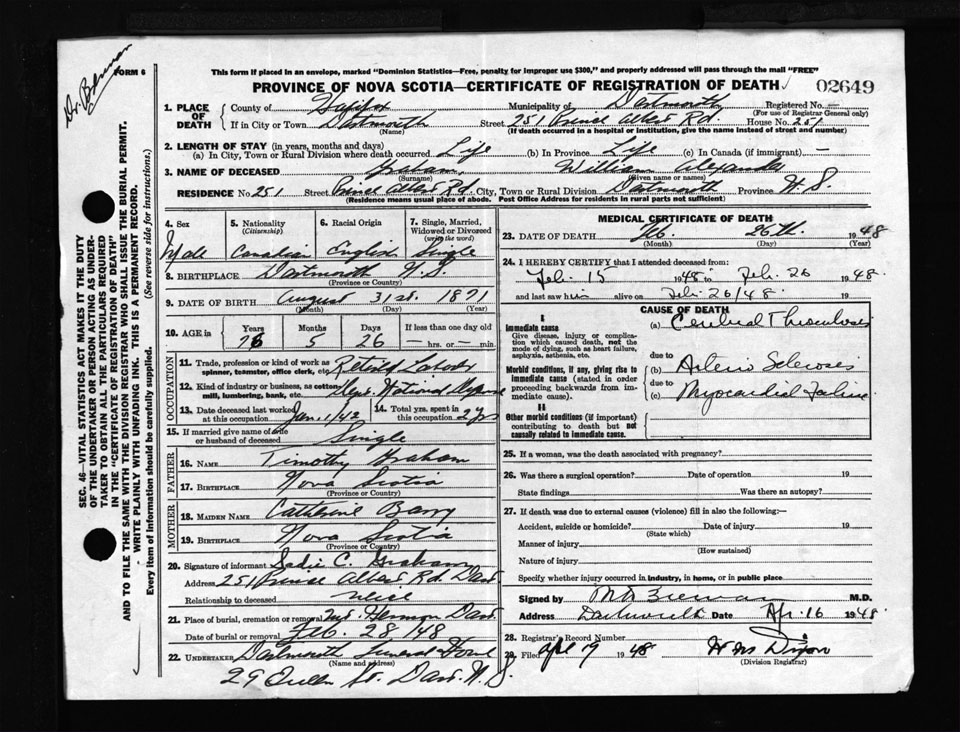 Dr. Brennan
FORM 6
This form if placed in an envelope, marked "Dominion Statistics—Free, penalty for improper use $300," and properly addressed will pass through the mail "FREE"
PROVINCE OF NOVA SCOTIA—CERTIFICATE OF REGISTRATION OF DEATH
02649
1. PLACE OF DEATH
County of Halifax Municipality of Dartmouth Registered No. —
(For use of Registrar General only)
If in City or Town Dartmouth Street 251 Prince Albert Rd. House No. 251
(Name) (If death occurred in a hospital or institution, give the name instead of street and number)
2. LENGTH OF STAY (in years, months and days)
(a) In City, Town or Rural Division where death occurred Life (b) In Province Life (c) In Canada (if immigrant) —
3. NAME OF DECEASED Graham William Alexander
(Surname) (Given name or names)
RESIDENCE No. 251 Street Prince Albert Rd. City, Town or Rural Division Dartmouth Province N.S.
(Residence means usual place of abode. Post Office Address for residents in rural parts not sufficient)
4. Sex
Male
5. Nationality
(Citizenship)
Canadian
6. Racial Origin
English
7. Single, Married, Widowed or Divorced
(write the word)
Single
8. BIRTHPLACE Dartmouth N.S.
(Province or Country)
9. DATE OF BIRTH August 31st. 1871
(Month) (Day) (Year)
10. AGE in Years Months Days If less than one day old
76 5 26 — hrs. or — min.
OCCUPATION
11. Trade, profession or kind of work as spinner, teamster, office clerk, etc. Retired Labourer
12. Kind of industry or business, as cotton mill, lumbering, bank, etc. National
13. Date deceased last worked at this occupation Jan. 1/42
14. Total yrs. spent in this occupation 2 yrs
15. If married give name of wife or husband of deceased Single
FATHER
16. NAME Timothy Graham
17. BIRTHPLACE Nova Scotia
(Province or Country)
MOTHER
18. MAIDEN NAME Catherine Barry
19. BIRTHPLACE Nova Scotia
(Province or Country)
20. Signature of informant Sadie C. Graham
Address 251 Prince Albert Rd. Dart
Relationship to deceased niece
21. Place of burial, cremation or removal Mt. Hermon Dart.
Date of burial or removal Feb. 28/48
22. UNDERTAKER Dartmouth Funeral Home
(Name and address)
29 Queen St. Dart. N.S.
MEDICAL CERTIFICATE OF DEATH
23. DATE OF DEATH Feb. 26th. 1948
(Month) (Day) (Year)
24. I HEREBY CERTIFY that I attended deceased from:
Feb. 15 1948 to Feb. 26 1948
and last saw him alive on Feb. 26/48 19
CAUSE OF DEATH
I
Immediate cause
Give disease, injury or complication which caused death, not the mode of dying, such as heart failure, asphyxia, asthenia, etc.
(a) Cerebral Thrombosis
due to
Morbid conditions, if any, giving rise to immediate cause (stated in order proceeding backwards from immediate cause).
(b) Arterio Sclerosis
due to
(c) Myocardial Failure
II
Other morbid conditions (if important) contributing to death but not causally related to immediate cause.
25. If a woman, was the death associated with pregnancy?
26. Was there a surgical operation? Date of operation 19
State findings Was there an autopsy?
27. If death was due to external causes (violence) fill in also the following:—
Accident, suicide or homicide? Date of injury 19
(State which)
Manner of injury
(How sustained)
Nature of injury
Specify whether injury occurred in industry, in home, or in public place
Signed by M.D.
Address Dartmouth Date Apr. 16 1948
28. Registrar's Record Number
29. Filed Apl 19 1948
(Division Registrar)
SEC. 46—VITAL STATISTICS ACT MAKES IT THE DUTY OF THE UNDERTAKER OR PERSON ACTING AS UNDERTAKER TO OBTAIN ALL THE PARTICULARS REQUIRED IN THE "CERTIFICATE OF REGISTRATION OF DEATH" AND TO FILE THE SAME WITH THE DIVISION REGISTRAR WHO SHALL ISSUE THE BURIAL PERMIT.
WRITE PLAINLY WITH UNFADING INK. THIS IS A PERMANENT RECORD.
Every item of information should be carefully supplied. (See reverse side for instructions.)